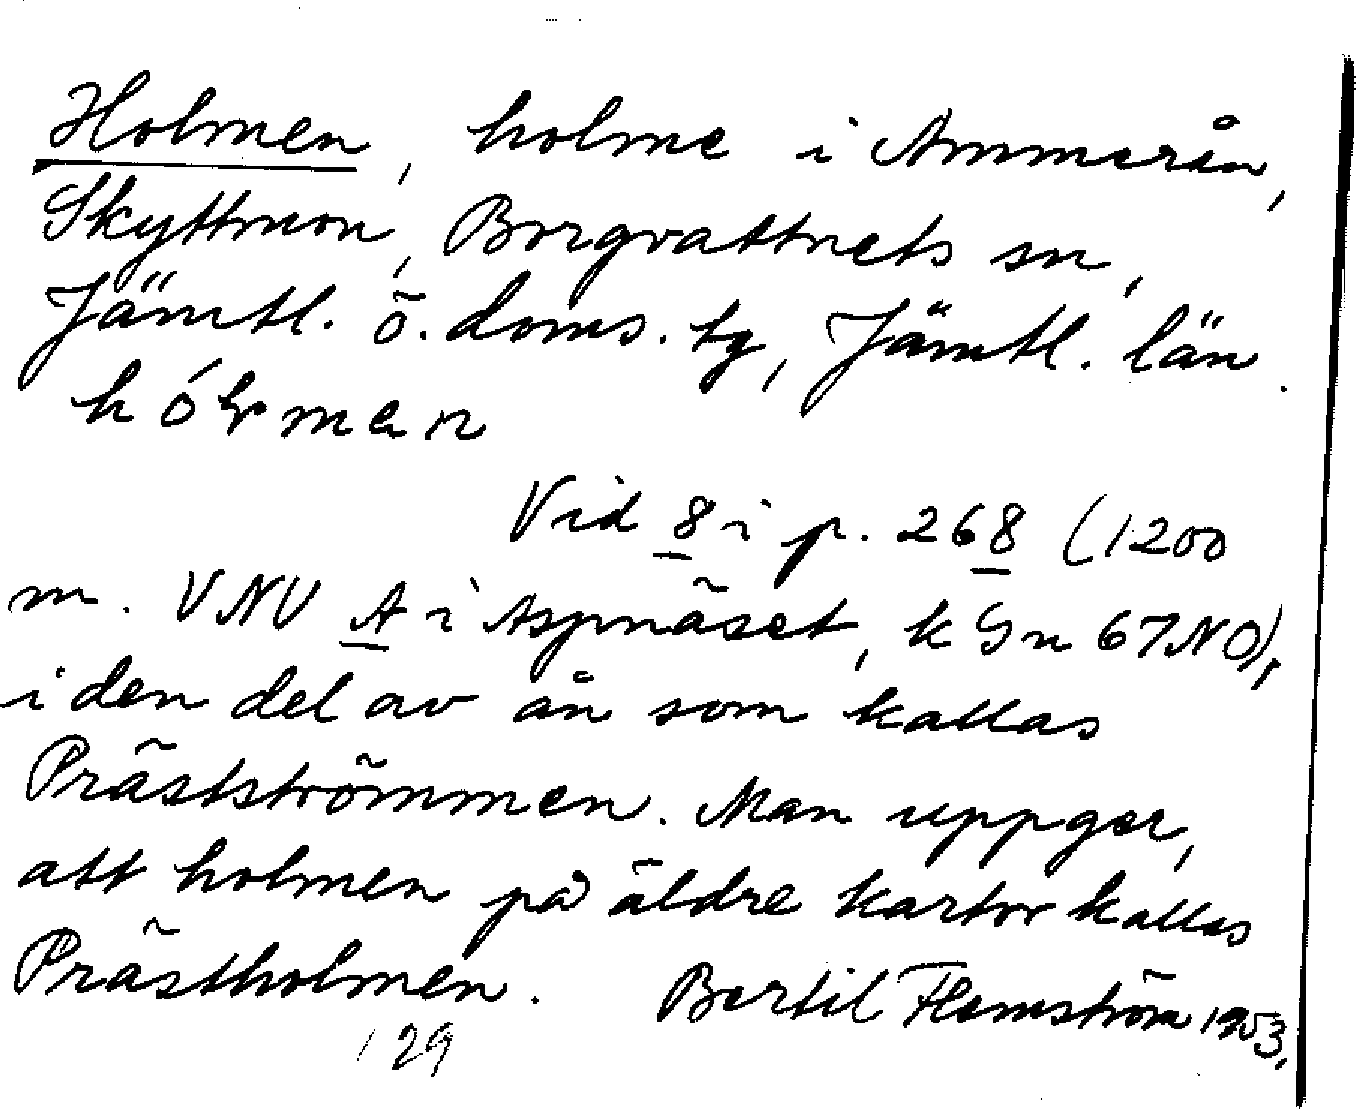 Holmen, holme i Ammerån,
Skyttmon, Borgvattnets sn,
Jämtl. ö. doms. tg, Jämtl. län.
hólmen
Vid 8 i p. 268 (1200
m. VNV A i Aspnäset, k Gn 67NO),
i den del av ån som kallas
Prästströmmen. Man uppger,
att holmen på äldre kartor kallas
Prästholmen. Bertil Flemström 1953.
129